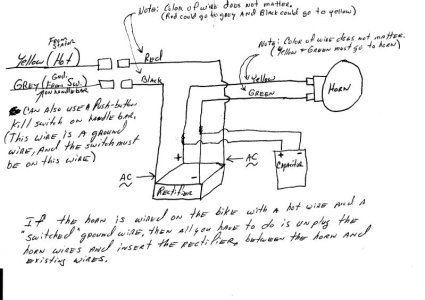 Note: Color of wire does not matter.
(Red could go to grey and Black could go to yellow)
From
Stator
Yellow (Hot)
Red
Note: Color of wire does not matter.
(Yellow & Green must go to horn)
Gnd.
Grey (From Sw.)
on handle bar
Black
Yellow
Green
Horn
Can also use a Push-button
Kill switch on handle bar.
(This wire is a ground
wire, and the switch must
be on this wire)
+
-
AC
AC
Rectifier
+ -
Capacitor
If the horn is wired on the bike with a hot wire and a
"switched" ground wire, then all you have to do is unplug the
horn wires and insert the rectifier, between the horn and
existing wires.